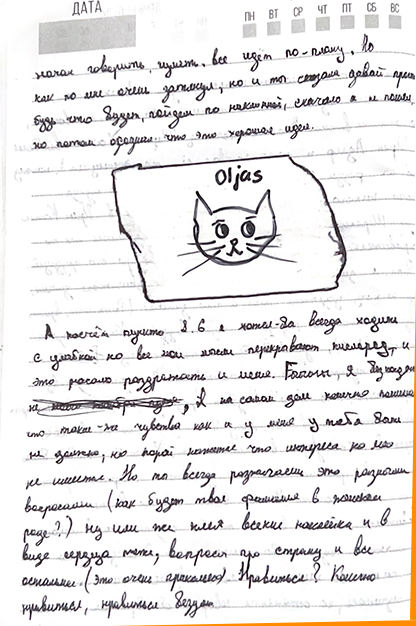 ДАТА
ПН ВТ СР ЧТ ПТ СБ ВС
начал говорить, шутить, все идёт по-плану. Но
как по мне очень затянул, но и ты сказала давай
будь что будет, пойдем по накатанной, сначало я не понял,
но потом осознал что это хорошая идея.
Oljas
А насчём пункта 8.6 я хотел-бы всегда ходить
с улыбкой но все мои мысли перекрывают кислород, и
это начало раздражать и меня. Блиин, я
не, Я на самом деле конечно понимаю
что такие-же чувства как и у меня у тебя быть
не должно, но порой кажется что интереса ко мне
не имеешь. Но ты всегда разжигаешь это разными
вопросами (как будет твоя фамилия в женском
роде?) ну или же клея всякие наклейки и в
виде сердца тоже, вопросы про страну и все
остальное. (это очень прикольно) Нравиться? Конечно
нравиться, нравиться